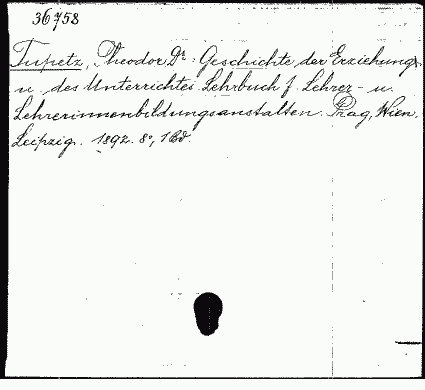 36758
Tupetz, Theodor Dr: Geschichte der Erziehung
u. des Unterrichtes. Lehrbuch f. Lehrer- u.
Lehrerinnenbildungsanstalten. Prag, Wien,
Leipzig. 1892. 8°, 1 Bd.